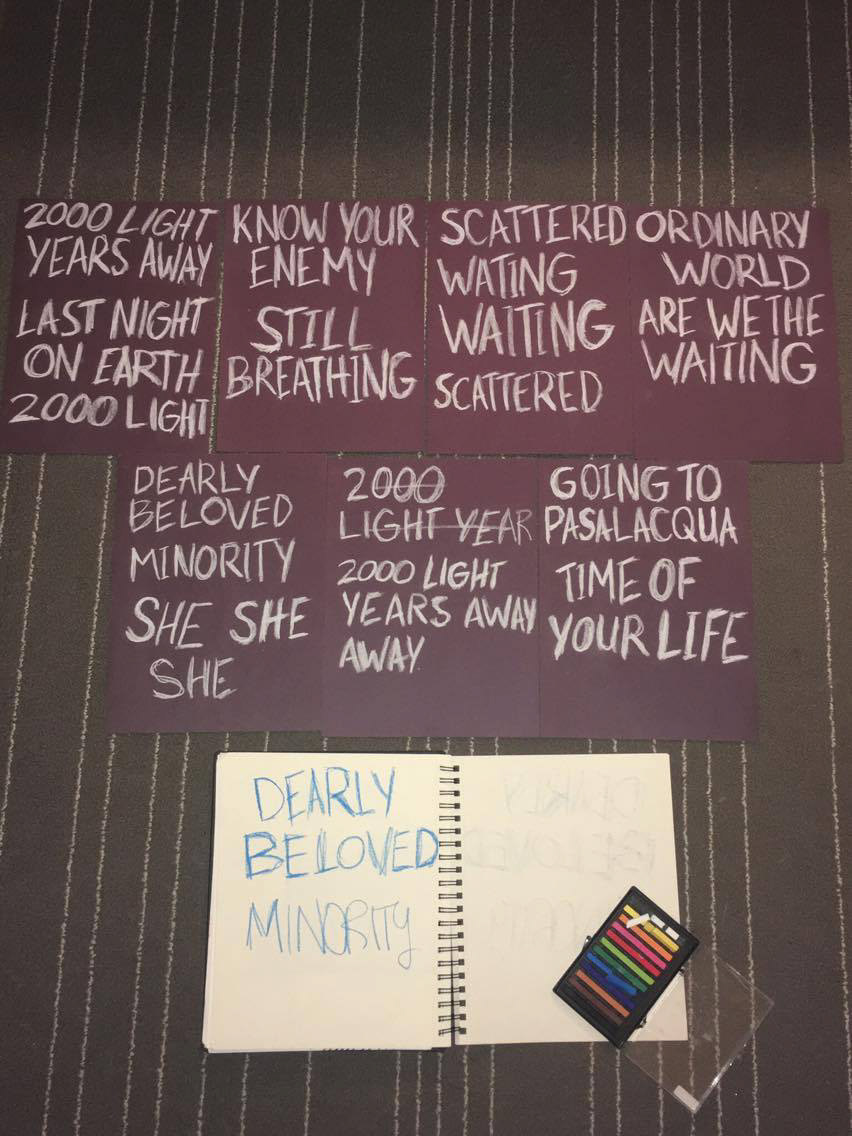 2000 LIGHT
YEARS AWAY
LAST NIGHT
ON EARTH
2000 LIGHT
KNOW YOUR
ENEMY
STILL
BREATHING
SCATTERED
WATING
WAITING
SCATTERED
ORDINARY
WORLD
ARE WE THE
WAITING
DEARLY
BELOVED
MINORITY
SHE SHE
SHE
2000
LIGHT YEAR
2000 LIGHT
YEARS AWAY
AWAY
GOING TO
PASALACQUA
TIME OF
YOUR LIFE
DEARLY
BELOVED
MINORITY